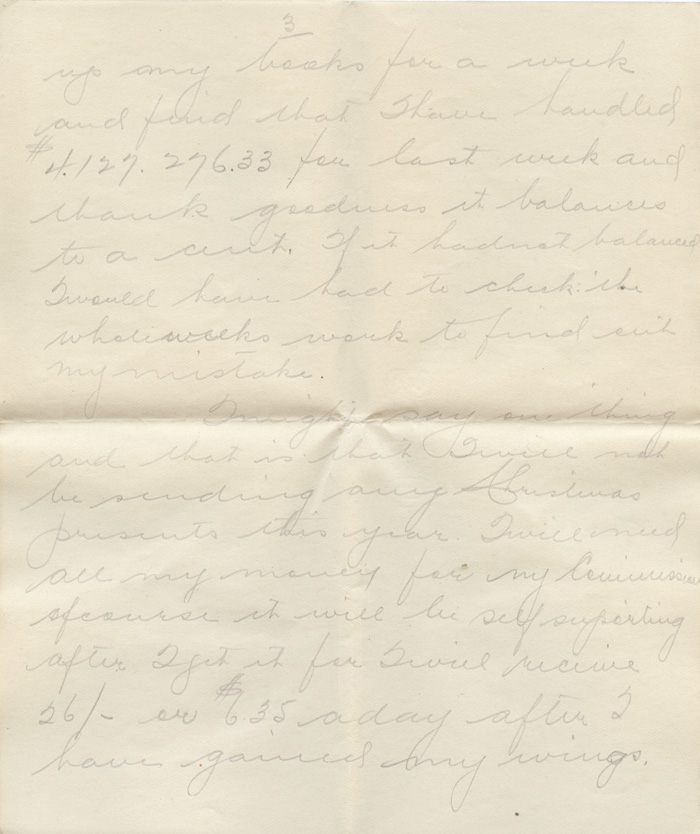 3
up my books for a week
and find that I have handled
$4.127.276.33 for last week and
thank goodness it balances
to a cent. If it hadnot balanced
I would have had to check the
whole weeks work to find out
my mistake.
I might say one thing
and that is that I will not
be sending any Christmas
presents this year. I will need
all my money for my Commission
ofcourse it will be self suporting
after I get it for I will receive
26/- or $6.35 a day after I
have gained my wings.